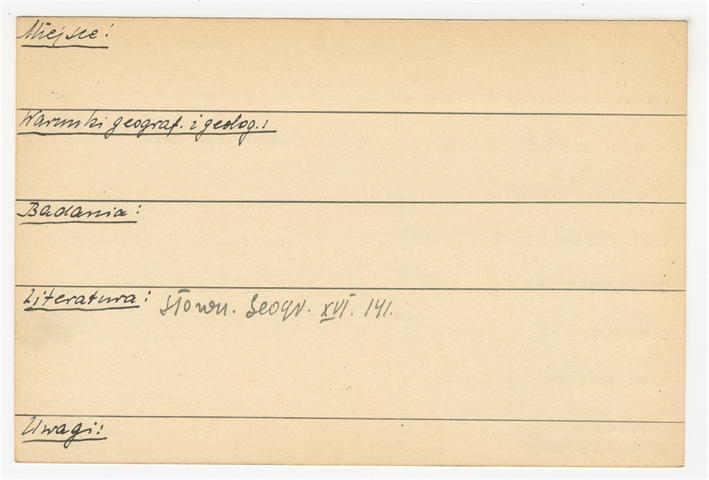 Miejsce:
Warunki geograf. i geolog.:
Badania:
Literatura: Słown. Geogr. XVI. 141.
Uwagi: